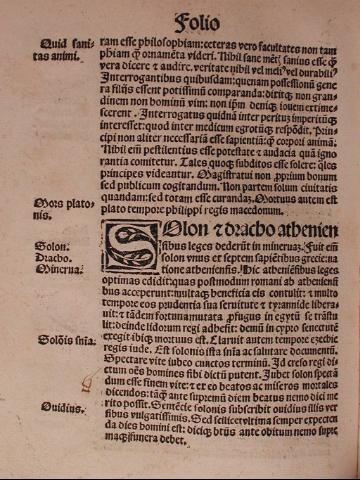 Folio
Quid sani-
tas animi.
ram esse philosophiam: ceteras vero facultates non tam
phiam ꝙ ornamēta videri. Nihil sane mēti sanius esse ꝙ
vera dicere ⁊ audire. veritate nihil vel meli⁹ vel durabili⁹
Interrogantibus quibusdam: quenam possessionū gene
ra filijs essent potissimū comparanda: dixit: que non gran
dinem non hominū vim: non ip̄m deniq̨ iouem extime-
scerent. Interrogatus quidnā inter peritū ⁊ imperitū
interesset: quod inter medicum egrotūq̨ respōdit. Prin-
cipi non aliter necessariā esse sapientiā: ꝙ corpori animā.
Nihil em̄ pestilentius esse potestate ⁊ audacia quā igno-
rantia comitetur. Tales quoq̨ subditos esse solere: q̄les
principes videantur. Magistratui non proprium bonum
sed publicum cogitandum. Non partem solum ciuitatis
quandam: sed totam esse curandaz. Mortuus autem est
plato tempore philippi regis macedonum.
Mors plato-
nis.
SOlon ⁊ dracho athenien
sibus leges dederūt in mineruaz. Fuit em̄
solon vnus et septem sapiētibus grecie: na
tione atheniensis. Hic atheniēsibus leges
optimas edidit: quas postmodum romani ab atheniensi
bus acceperunt: multaq̨ beneficia eis contulit: ⁊ multo
tempore eos prudentia sua seruauit ⁊ tyrannide libera-
uit: ⁊ tādem fortuna mutata profugus in egyptū se trāstu
lit: deinde lidorum regi adhesit: demū in cypro senectutē
exegit ibiq̨ mortuus est. Claruit autem tempore ezechie
regis iude. Est solonis ista snīa ac salutare documentū.
Spectare vite iubeo cunctos terminū. Id creso regi di-
ctum oēs homines sibi dictū putent. Jubet solon spectā
dum esse finem vite: ⁊ er eo beatos ac miseros mortales
dicendos: tāq̨ ante supremū diem beatus nemo dici me
rito possit. Sentēcie solonis subscribit ouidius illis ver
sibus vulgatissimis. Sed scilicet vltima semper expectan
da dies homini est: diciq̨ btūs ante obitum nemo supre
maq̨ funera debet.
Solon.
Dracho.
Minerua.
Solōis snīa.
Ouidius.